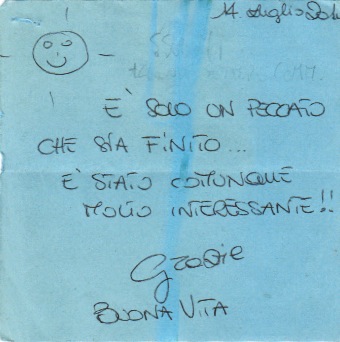 14 Luglio
È SOLO UN PECCATO
CHE SIA FINITO...
È STATO COMUNQUE
MOLTO INTERESSANTE!!
Grazie
BUONA VITA